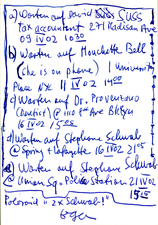 a) Warten auf David Suss
Tax accountant 271 Madison Ave
03 IV 02 6 30
b) Warten auf Monchette Bell
(she is on phone) 1 University
Place NYC 11 IV 02 14 00
c) Warten auf Dr. Provenzano
(Dentist) @ 110 8th Ave Bklyn
16 IV 02
d) Warten auf Stephane Schwab
@ Spring + Lafayette 16 IV 02 21 05
e) Warten auf Stephane Schwab
@ Union Sq. Police Station 21 IV 02
15 05
Polaroid "2x Schwab!"